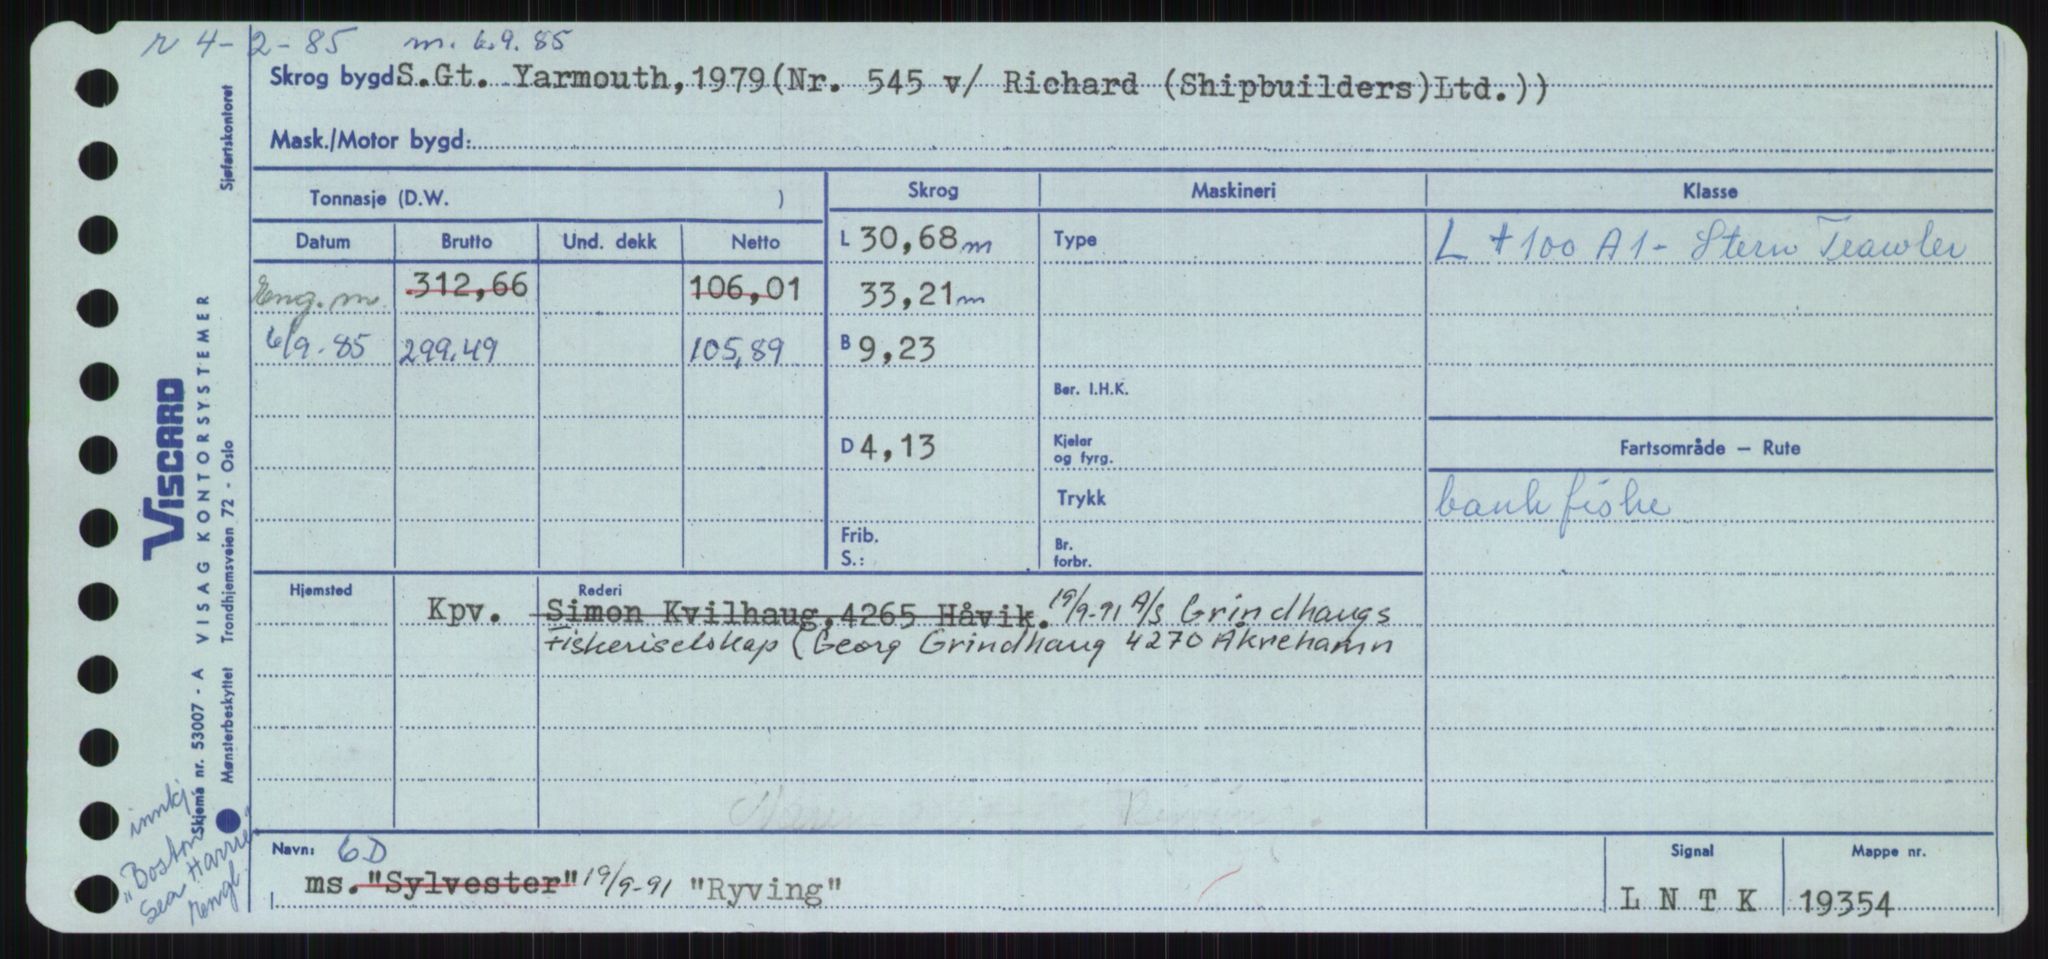 r 4-2-85 m. 6.9.85
Skrog bygd S.Gt. Yarmouth, 1979(Nr. 545 v/ Richard (Shipbuilders)Ltd.))
Mask./Motor bygd:
Tonnasje (D.W. )
Skrog
Maskineri
Klasse
Datum
Brutto
Und. dekk
Netto
L 30,68 m
Type
L + 100 A1 - Stern Trawler
Eng. m.
312,66
106,01
33,21 m
6/9.85
299.49
105,89
B 9,23
Ber. I.H.K.
D 4,13
Kjeler
og fyrg.
Fartsområde — Rute
Trykk
bankfiske
Frib.
S.:
Br.
forbr.
Hjemsted
Rederi
Kpv.
Simon Kvilhaug, 4265 Håvik. 19/9-91 A/S Grindhaugs
Fiskeriselskap (Georg Grindhaug 4270 Åkrehamn
Navn: 6D
ms. "Sylvester" 19/9-91 "Ryving"
Signal
L N T K
Mappe nr.
19354
Sjøfartskontoret
VISCARD
VISAG KONTORSYSTEMER
Skjema nr. 53007 - A
Mønsterbeskyttet Trondhjemsveien 72 - Oslo
innkj.
"Boston
Sea Harrier"
engl.